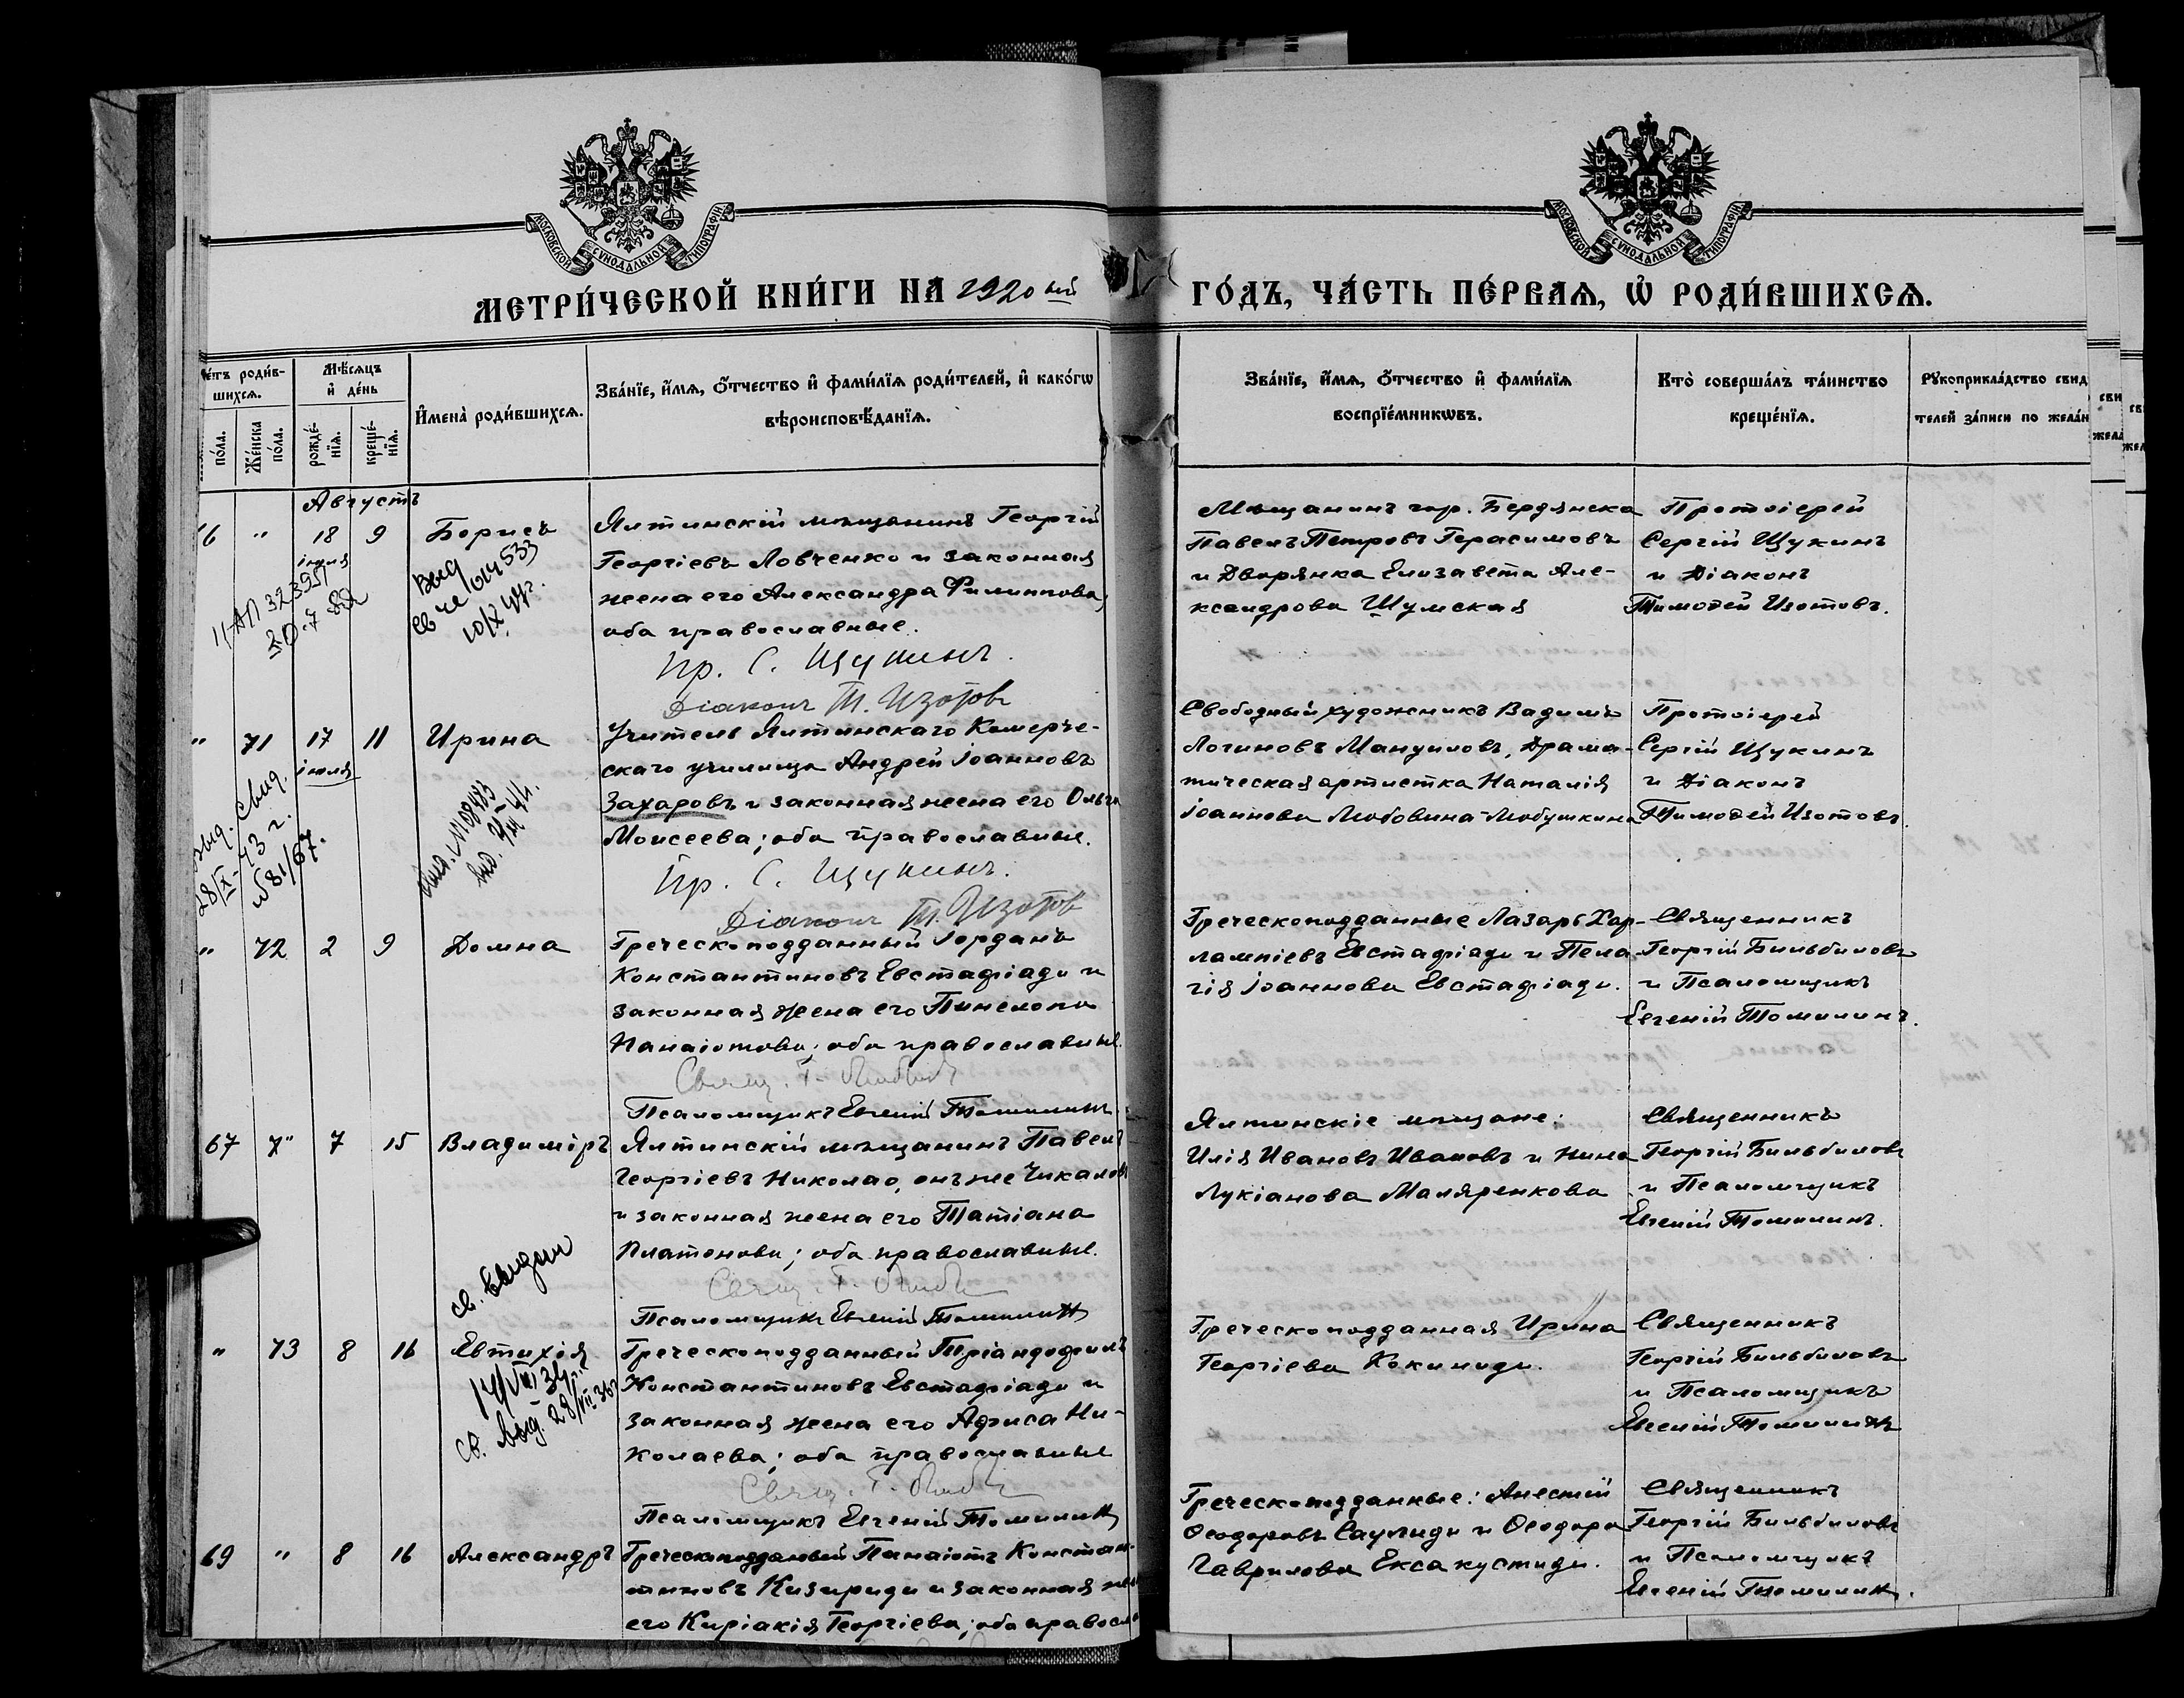 МОСКОВСКОЙ СѴНОДАЛЬНОЙ ТИПОГРАФІИ
МОСКОВСКОЙ СѴНОДАЛЬНОЙ ТИПОГРАФІИ
МЕТРИ́ЧЕСКОЙ КНИ́ГИ НА 1920 ый ГО́ДЪ, ЧА́СТЬ ПЕ́РВАѦ, Ѡ҆ РОДИ́ВШИХСѦ.
е́тъ роди́в-
шихсѧ.
по́ла.
Же́нска
по́ла.
Мѣ́сѧцъ
и҆ де́нь
рожде́-
нїѧ.
креще́-
нїѧ.
И҆мена̀ роди́вшихсѧ.
Зва́нїе, и҆́мѧ, ѻ҆́тчество и҆ фами́лїѧ роди́телей, и҆ како́гѡ
вѣроисповѣ́данїѧ.
Зва́нїе, и҆́мѧ, ѻ҆́тчество и҆ фами́лїѧ
воспрїе́мникѡвъ.
Кто̀ соверша́лъ та́инство
креще́нїѧ.
Рꙋкоприкла́дство свид
телей за́писи по жела́н
Августъ
6 " 18 9 Борисъ
іюля
Выд
10/X 47г.
Ялтинскій мѣщанинъ Георгій
Георгіевъ Ловченко и законная
жена его Александра Филиппова,
оба православные.
Пр. С. Щукинъ.
Діаконъ Т. Изотовъ
Мѣщанинъ гор. Бердянска
Павелъ Петровъ Герасимовъ
и Дворянка Елизавета Але-
ксандрова Шумская
Протоіерей
Сергій Щукинъ
и Діаконъ
Тимофей Изотовъ.
" 71 17 11 Ирина
іюля
выд. свид.
28/IX-43 г.
№81/67.
Учитель Ялтинскаго Комерче-
скаго училища Андрей Іоанновъ
Захаровъ и законная жена его Ольга
Моисеева; оба православные.
Пр. С. Щукинъ.
Діаконъ Т. Изотовъ
Свободный художникъ Вадимъ
Логиновъ Мануиловъ, драма-
тическая артистка Наталія
Іоаннова Любовина-Любушкина
Протоіерей
Сергій Щукинъ
и Діаконъ
Тимофей Изотовъ
" 72 2 9 Домна
Греческоподданный Іорданъ
Константиновъ Евстафіади и
законная жена его Пинелопа
Панаіотова; оба православные.
Свящ. Г.
Псаломщикъ Евгеній Томилинъ
Греческоподданные Лазарь Хар-
лампіевъ Евстафіади и Пела-
гія Іоаннова Евстафіади.
Священникъ
Георгій Бильбиловъ
и Псаломщикъ
Евгеній Томилинъ.
67 " 7 15 Владиміръ
св. выдан
Ялтинскій мѣщанинъ Павелъ
Георгіевъ Николао, онъ же Чикаловъ
и законная жена его Татіана
Платонова; оба православные.
Свящ. Г.
Псаломщикъ Евгеній Томилинъ
Ялтинскіе мѣщане:
Илія Ивановъ Ивановъ и Нина
Лукіанова Маляренкова
Священникъ
Георгій Бильбиловъ
и Псаломщикъ
Евгеній Томилинъ.
" 73 8 16 Евтихія
св. выд. 28/VII-36г
Греческоподданный Тріандофилъ
Константиновъ Евстафіади и
законная жена его Афиса Ни-
колаева; оба православные
Свящ. Г.
Псаломщикъ Евгеній Томилинъ
Греческоподданная Ирина
Георгіева Кокиниди.
Священникъ
Георгій Бильбиловъ
и Псаломщикъ
Евгеній Томилинъ
69 " 8 16 Александръ
Греческоподданый Панаіотъ Констан-
тиновъ Кизириди и законная жена
его Киріакія Георгіева; оба правосл
Греческоподданные: Анестій
Ѳеодоровъ Саулиди и Ѳеодора
Гаврилова Ексакустиди.
Священникъ
Георгій Бильбиловъ
и Псаломщикъ
Евгеній Томилинъ.